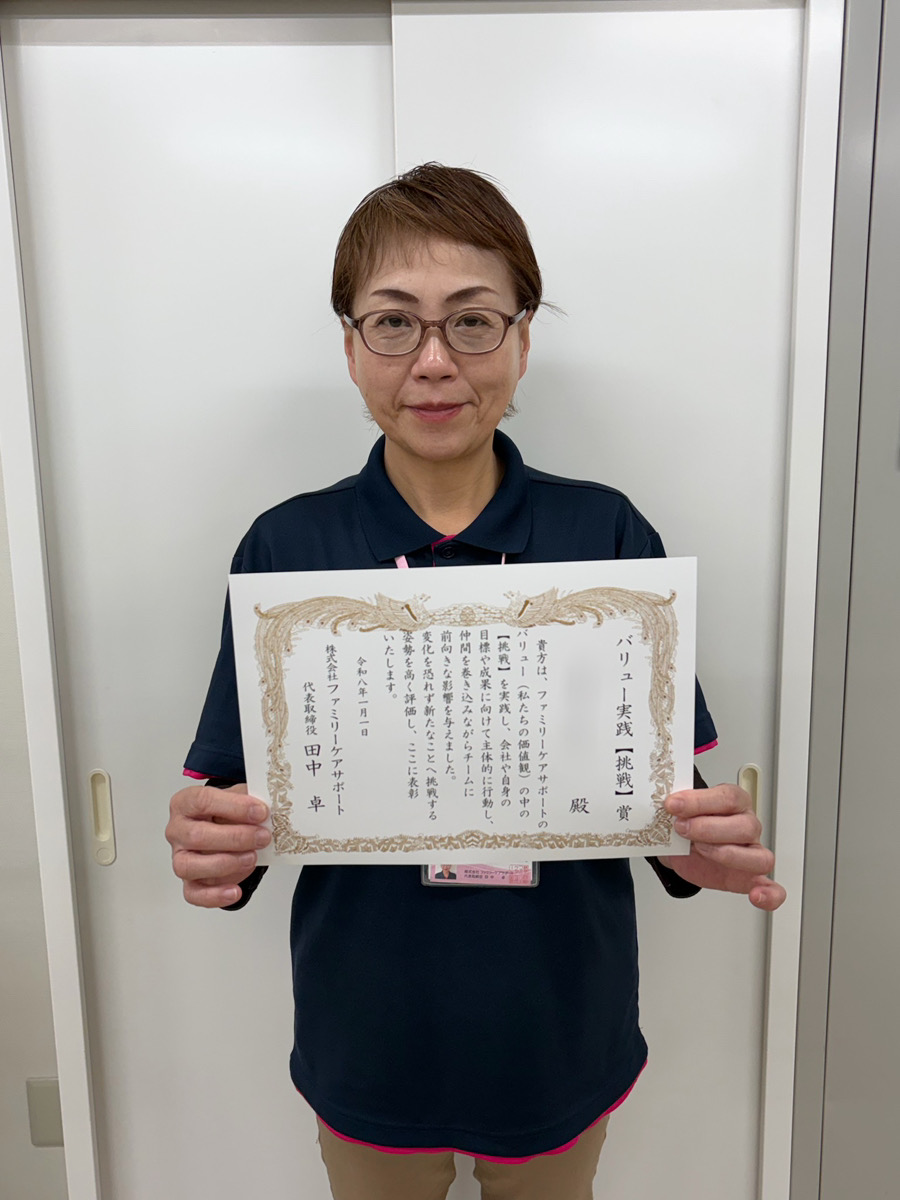 バリュー実践【挑戦】賞
殿
貴方は、ファミリーケアサポートの
バリュー（私たちの価値観）の中の
【挑戦】を実践し、会社や自身の
目標や成果に向けて主体的に行動し、
仲間を巻き込みながらチームに
前向きな影響を与えました。
変化を恐れず新たなことへ挑戦する
姿勢を高く評価し、ここに表彰
いたします。
令和八年一月一日
株式会社ファミリーケアサポート
代表取締役 田中 卓